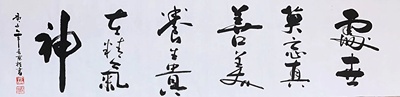 處世
莫忘真
善美
養生貴
在精氣
神